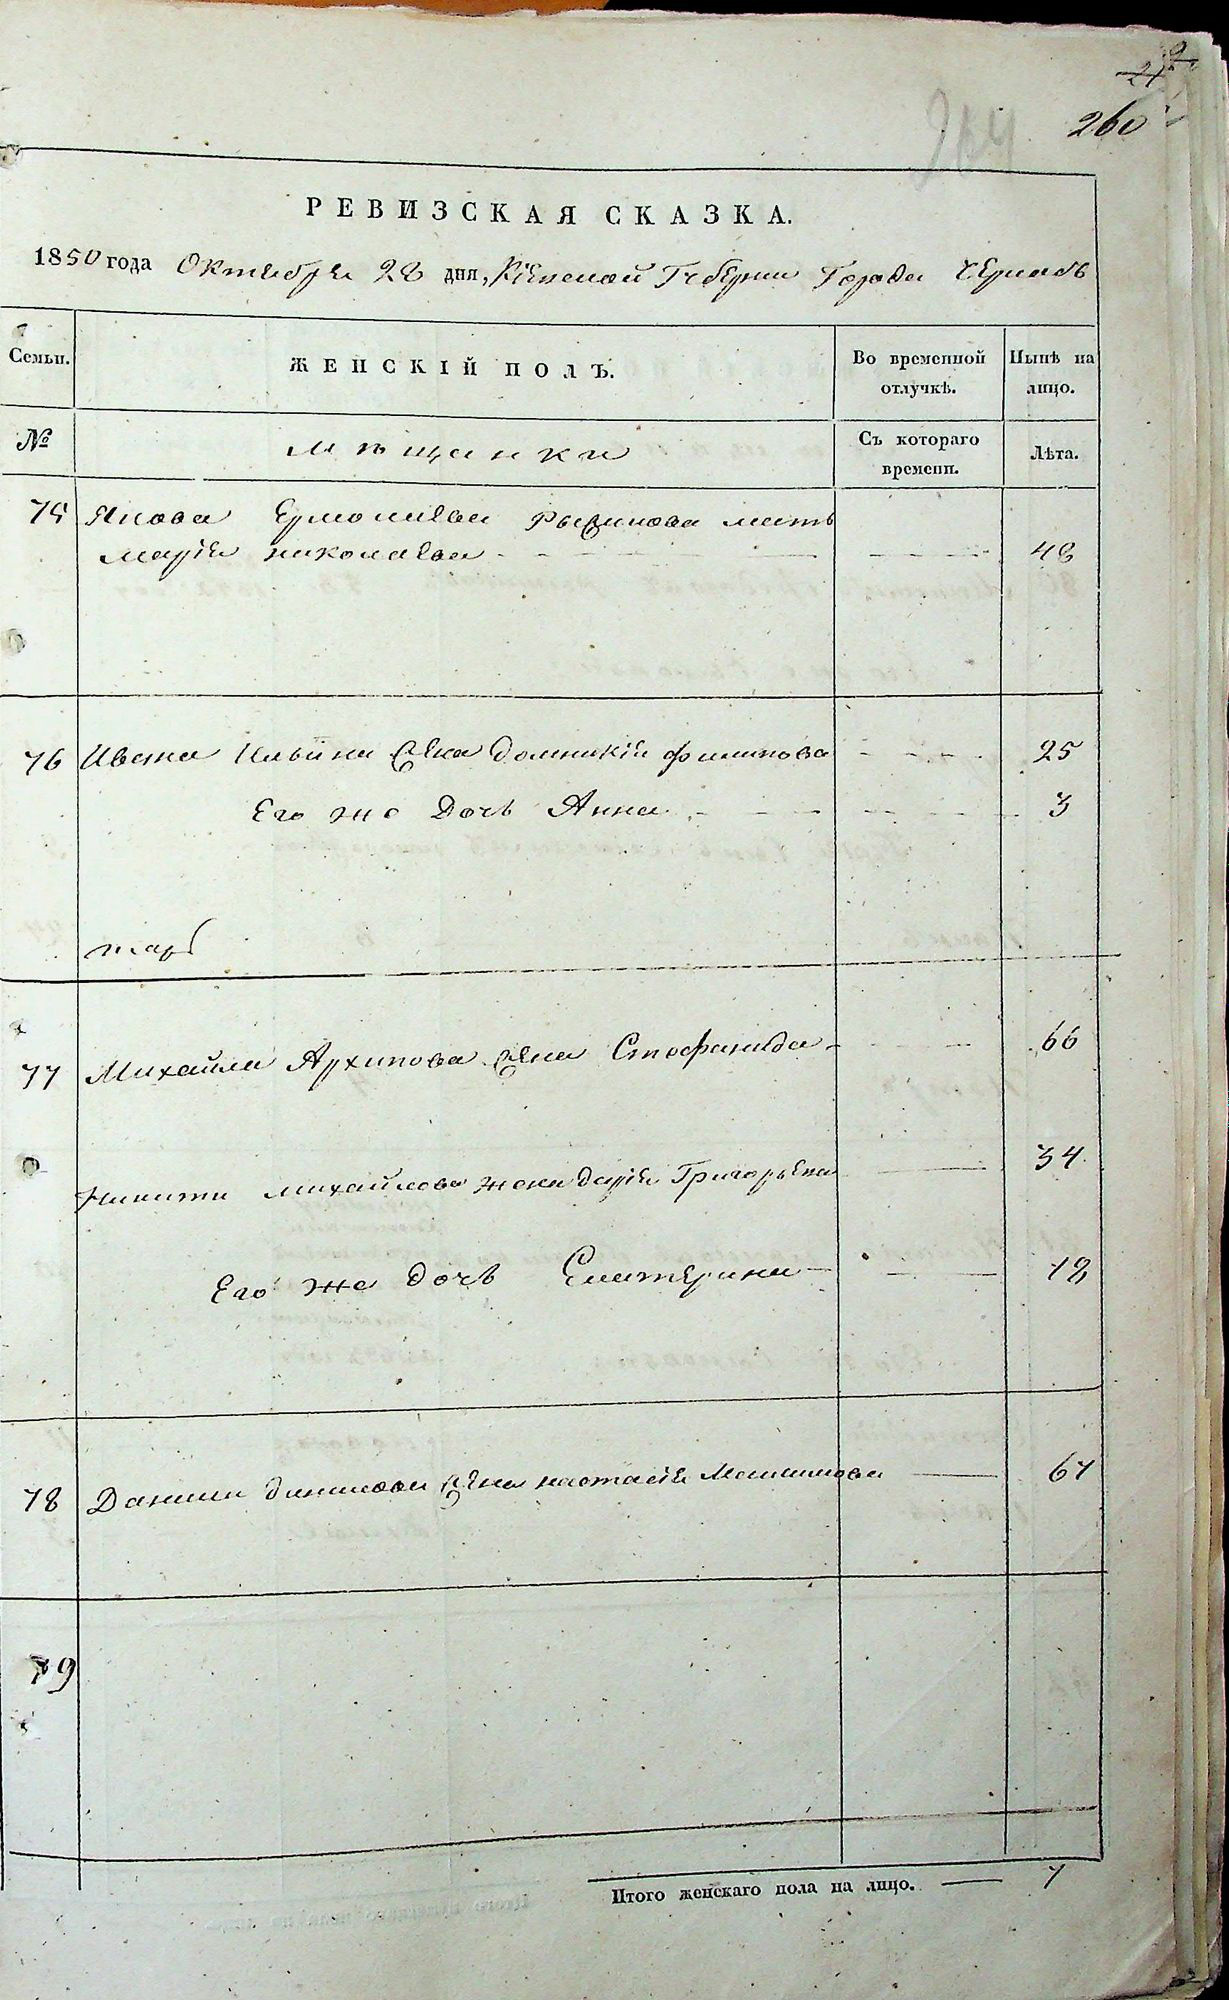 260
264
РЕВИЗСКАЯ СКАЗКА.
1850 года Октября 28 дня, Кіевской Губерніи Города Черкасъ
Семьи. ЖЕНСКІЙ ПОЛЪ. Во временной отлучкѣ. Нынѣ на лицо.
№ Мѣщанки Съ котораго времени. Лѣта.
75 Якова Ермолаева мать
Марія николаева 48
76 Ивана Ильина Жена домникія филипова 25
Его же Дочь Анна 3
77 Михайла Архипова Жена Стефанида 66
Никити михайлова жена дарія Григорьева 34
Его же дочь Екатерина 18
78 Данила Жена настасія 67
79
Итого женскаго пола на лицо. 7